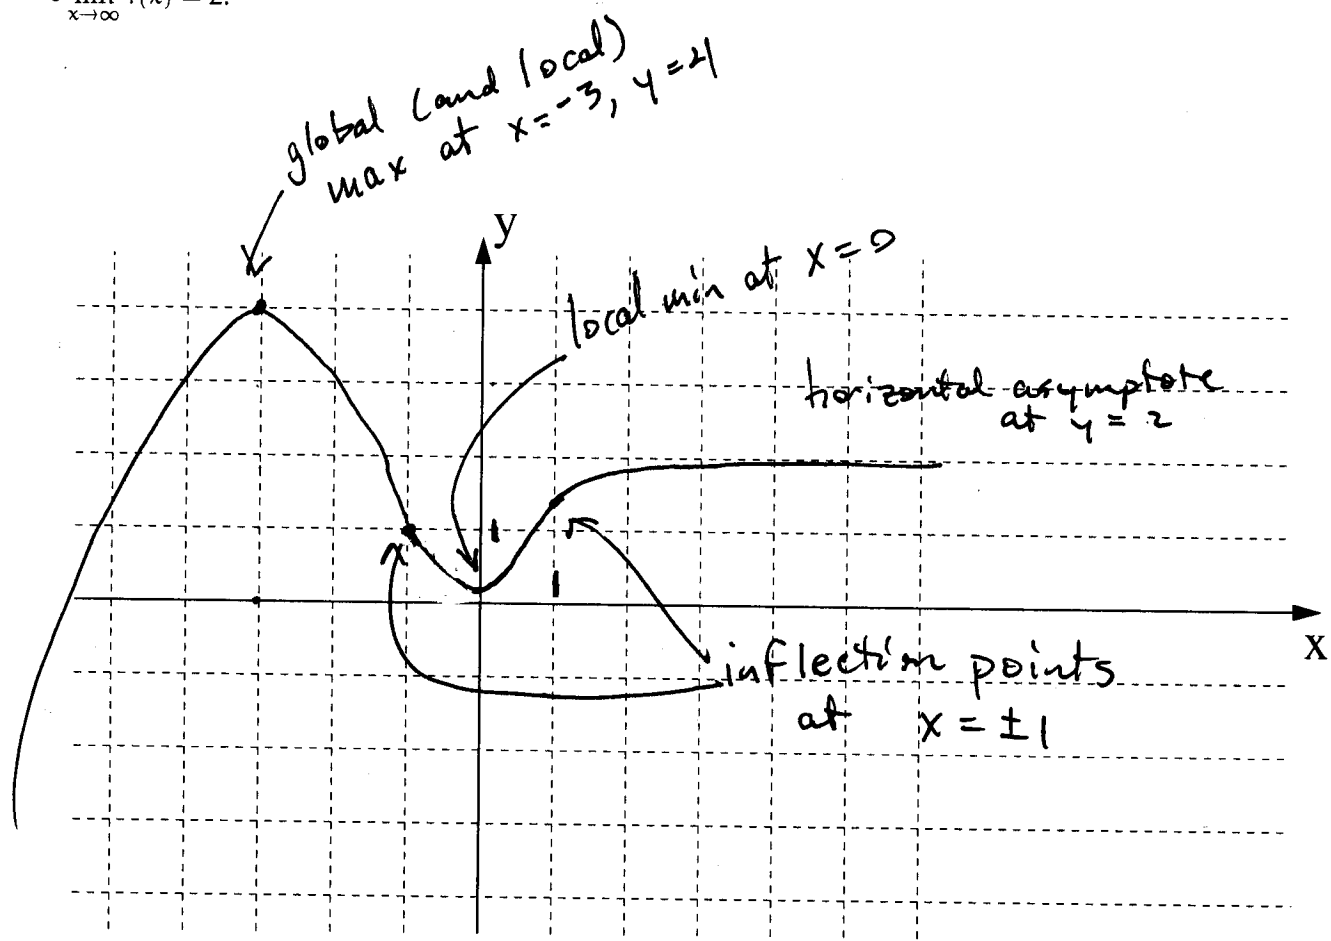 x→∞
global (and local)
max at x=-3, y=4
y
local min at x=0
horizontal asymptote
at y = 2
1
1
x
inflection points
at x = ±1